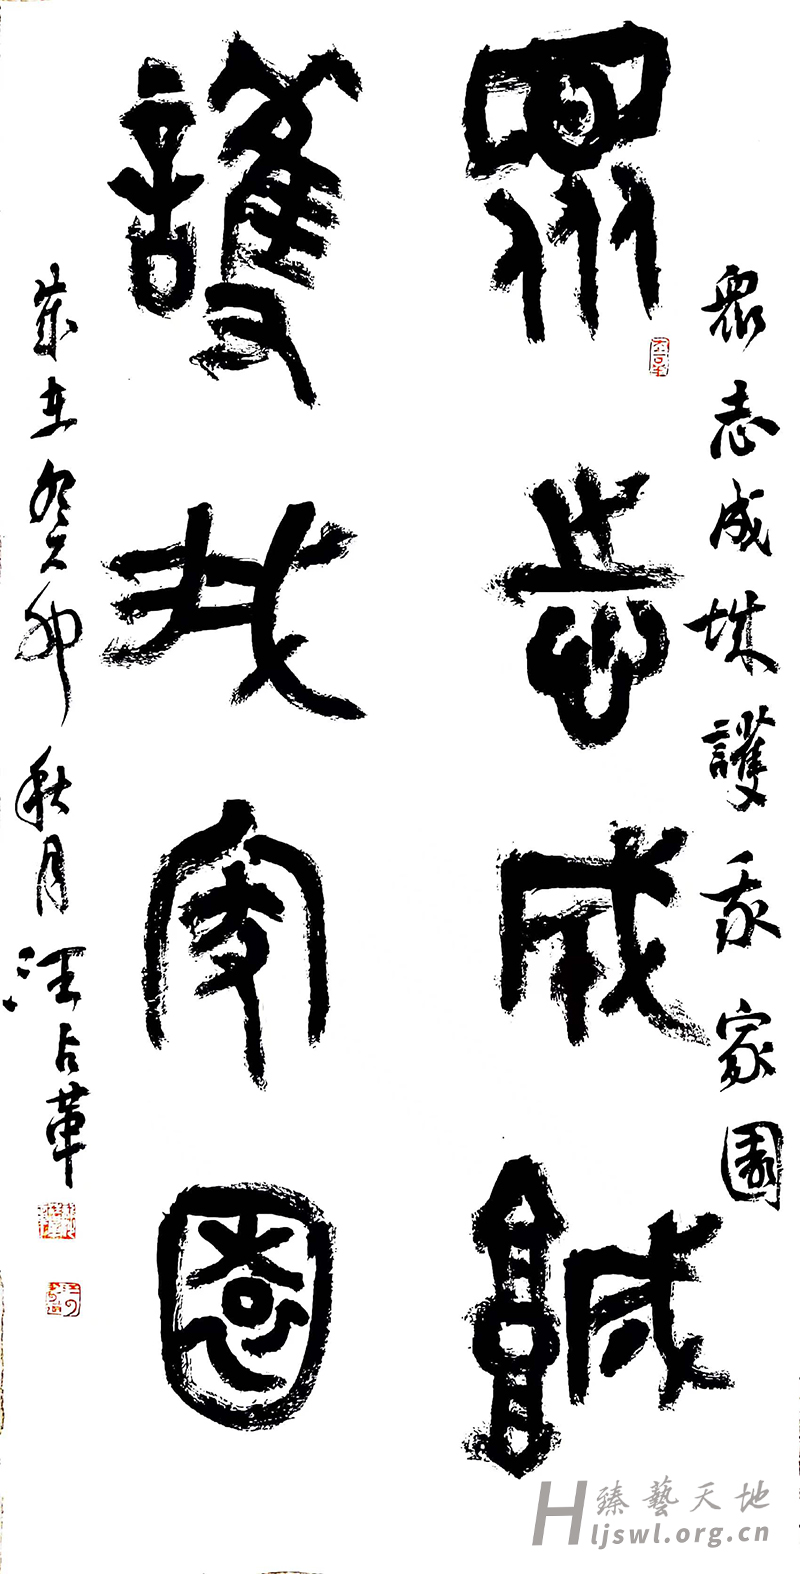 眾志成城護我家園
眾志成城
護我家園
歲在癸卯秋月汪占革
臻藝天地
Hljswl.org.cn